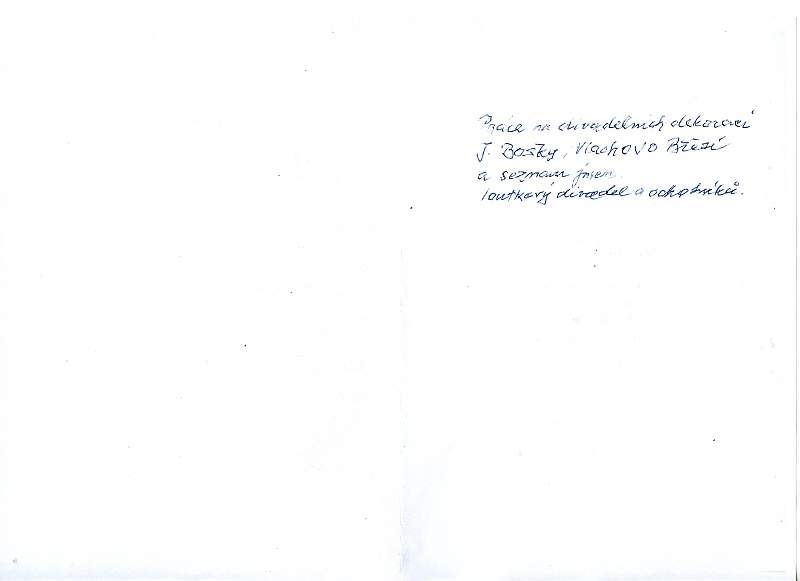 Práce na divadelních dekorací
J. Bosky, Vlachovo Březí
a seznam jmen
loutkový divadel a ochotníků.